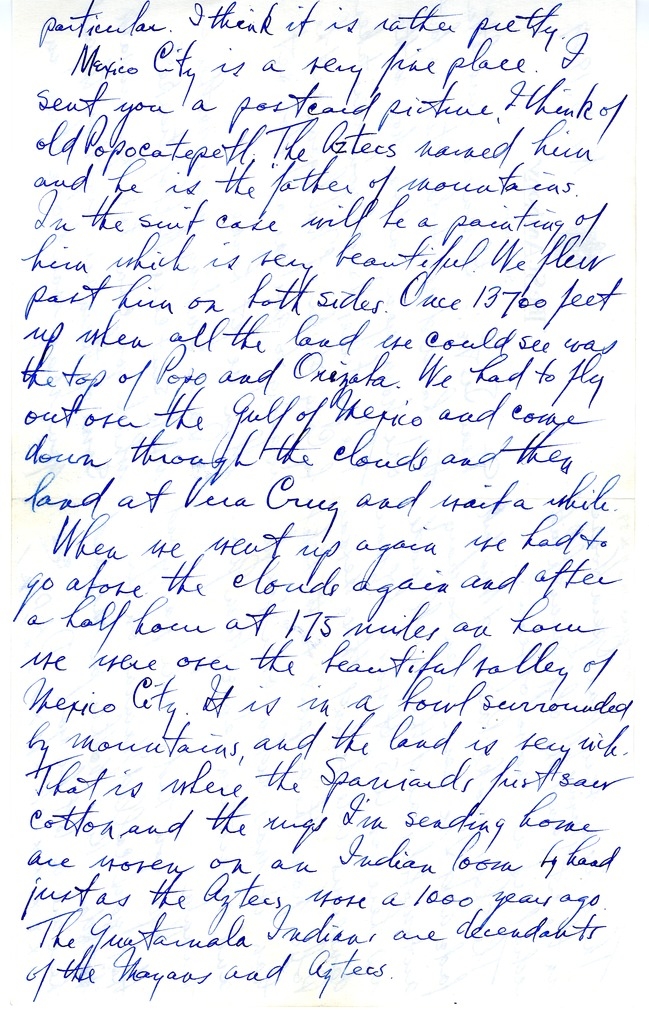 particular. I think it is rather pretty.
Mexico City is a very fine place. I
sent you a postcard picture, I think of
old Popocatepetl. The Aztecs named him
and he is the father of mountains.
In the suit case will be a painting of
him which is very beautiful. We flew
past him on both sides. Once 13700 feet
up when all the land we could see was
the top of Popo and Orizaba. We had to fly
out over the Gulf of Mexico and come
down through the clouds and then
land at Vera Cruz and wait a while.
When we went up again we had to
go above the clouds again and after
a half hour at 175 miles an hour
we were over the beautiful valley of
Mexico City. It is in a bowl surrounded
by mountains, and the land is very rich.
That is where the Spaniards first saw
cotton and the rugs I'm sending home
are woven on an Indian loom by hand
just as the Aztecs wove a 1000 years ago.
The Guatamala Indians are decendants
of the Mayans and Aztecs.